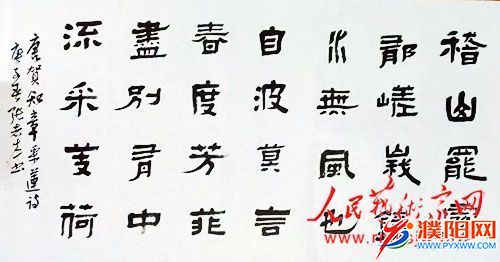 稽山罷霧
郁嵯峩鏡
水無風也
自波莫言
春度芳菲
盡別有中
流采芰荷
唐賀知章采蓮詩
庚子春張志书
人民藝術家网
www.r
濮阳网
WWW.PYXWW.COM